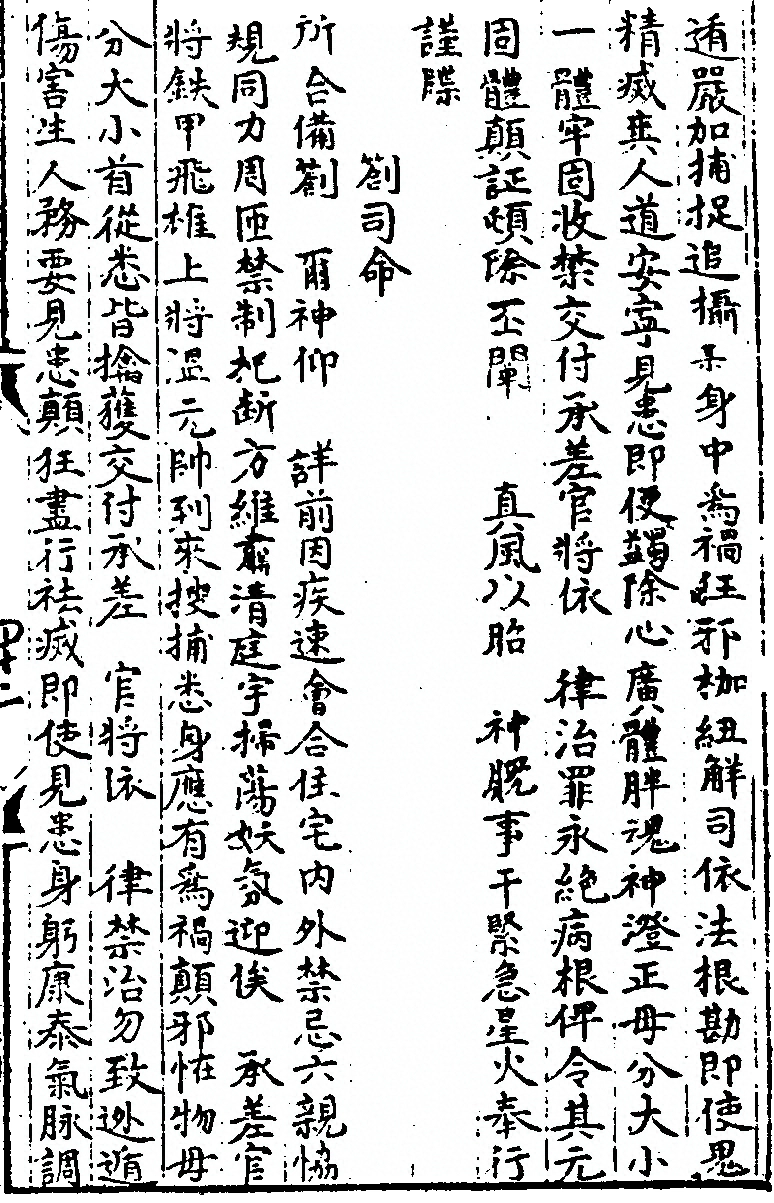 遁嚴加捕捉追攝某身中為禍狂邪枷紐觧司依法根勘即使鬼
精㓕喪人道安寜見患即便蠲除心廣體胖魂神澄正毋分大小
一體牢固收禁交付承差官將依 律治罪永絶病根俾令其元
固體顛証頓除丕闡 真風以昭 神貺事干緊急星火奉行
謹牒
劄司命
所合備劄 爾神仰 詳前因疾速會合住宅内外禁忌六親恊
規同力周匝禁制把断方維肅清庭宇掃蕩妖氛迎俟 承差官
將鉄甲飛雄上將溫元帥到來搜捕患身應有為禍顛邪怪物毋
分大小首從悉皆擒獲交付承差 官將依 律禁治勿致迯遁
傷害生人務要見患顛狂盡行袪㓕即使見患身躬康泰氣脉調